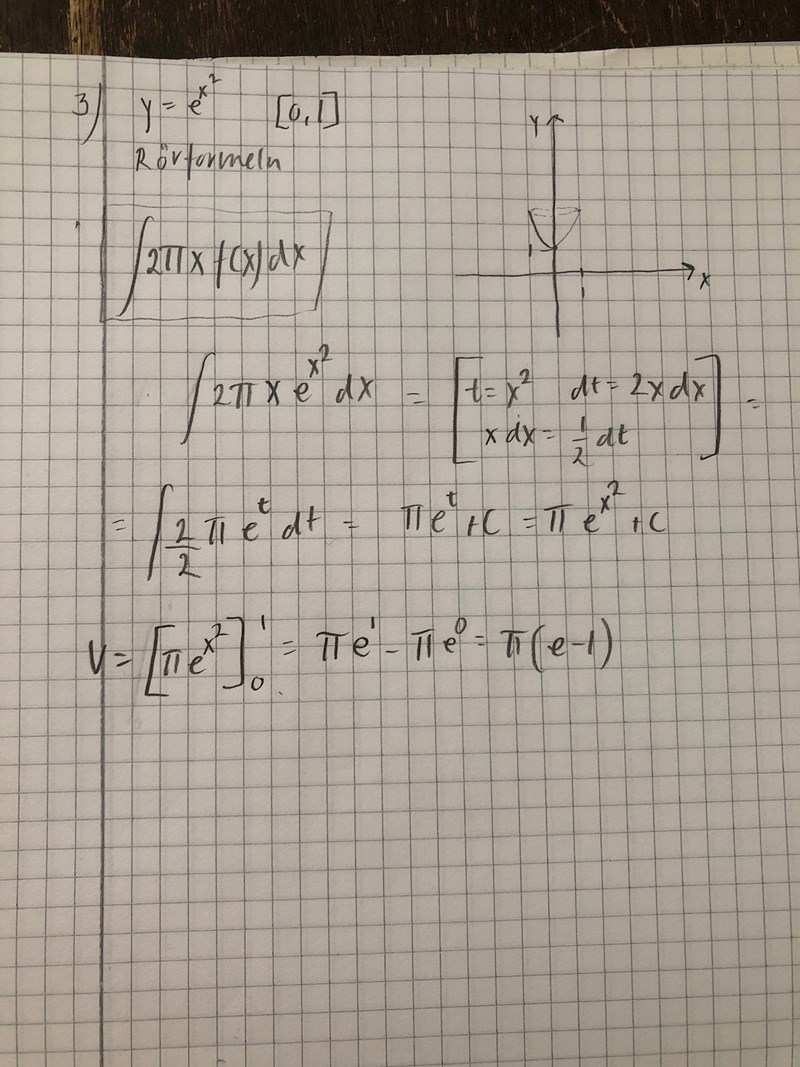 3) y = e^x² [0,1]
Rörformeln
Y
∫2πx f(x)dx
1
x
1
∫2πx e^x² dx = [t = x² dt = 2x dx
x dx = 1/2 dt] =
= ∫2/2 π e^t dt = πe^t + C = π e^x² + C
V = [πe^x²]₀¹ = πe¹ - πe⁰ = π(e-1)